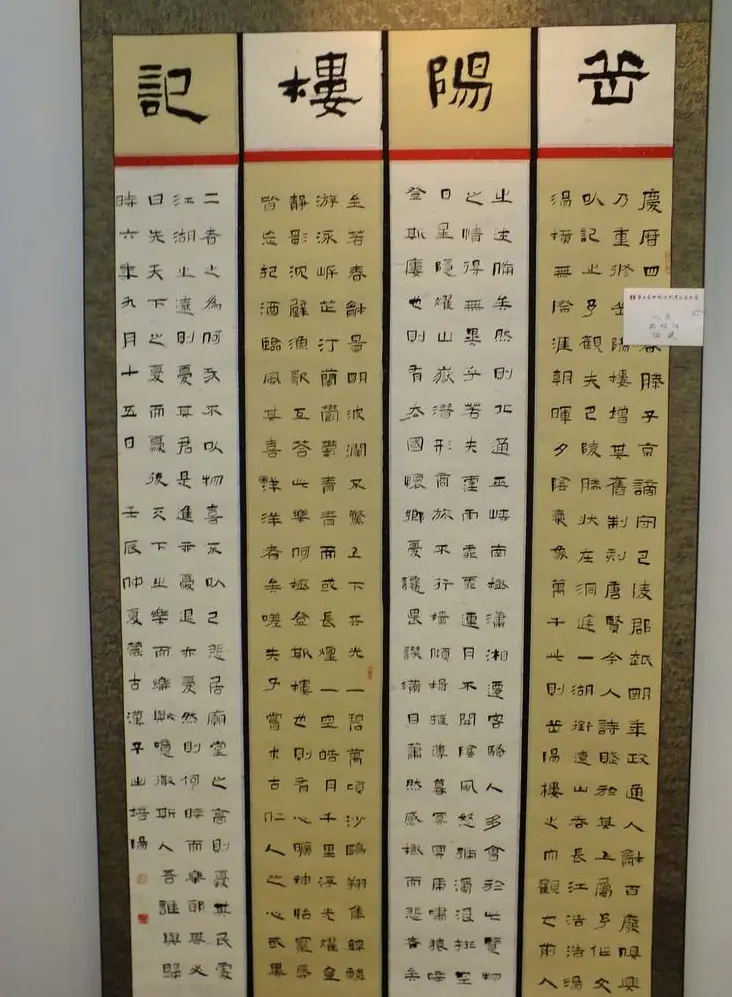 岳陽樓記
慶曆四春滕子京謫守巴陵郡越明年政通人龢百廢具興
乃重修岳陽樓增其舊制刻唐賢今人詩賦於其上屬予作文
以記之予觀夫巴陵勝狀在洞庭一湖銜遠山吞長江浩浩湯
湯橫無際涯朝暉夕陰氣象萬千此則岳陽樓之大觀也前人
之述備矣然則北通巫峽南極瀟湘遷客騷人多會於此覽物
之情得無異乎若夫霪雨霏霏連月不開陰風怒號濁浪排空
日星隱耀山嶽潛形商旅不行檣傾楫摧薄暮冥冥虎嘯猿啼
登斯樓也則有去國懷鄉憂讒畏譏滿目蕭然感極而悲者矣
至若春龢景明波瀾不驚上下天光一碧萬頃沙鷗翔集錦鱗
游泳岸芷汀蘭鬱鬱青青而或長煙一空皓月千里浮光耀金
靜影沈璧漁歌互答此樂何極登斯樓也則有心曠神怡寵辱
皆忘把酒臨風其喜洋洋者矣嗟夫予嘗求古仁人之心或異
二者之為何哉不以物喜不以己悲居廟堂之高則憂其民處
江湖之遠則憂其君是進亦憂退亦憂然則何時而樂耶其必
曰先天下之憂而憂後天下之樂而樂歟噫微斯人吾誰與歸
時六年九月十五日 壬辰仲夏蒙古漢子山培陽